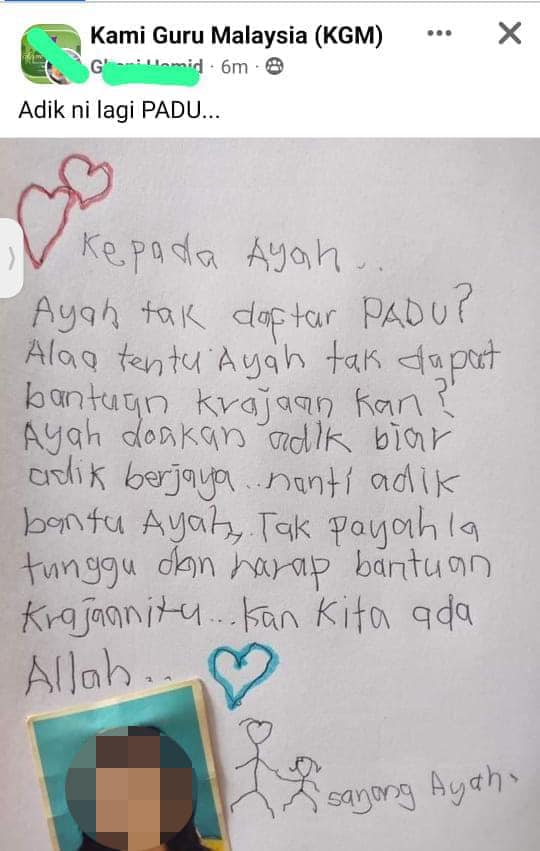 Kami Guru Malaysia (KGM)
6m
Adik ni lagi PADU...
Kepada Ayah..
Ayah tak daftar PADU?
Alaa tentu Ayah tak dapat
bantuan krajaan kan?
Ayah doakan adik biar
adik berjaya..nanti adik
bantu Ayah,. Tak payahla
tunggu dan harap bantuan
krajaanitu...kan kita ada
Allah...
sayang Ayah.